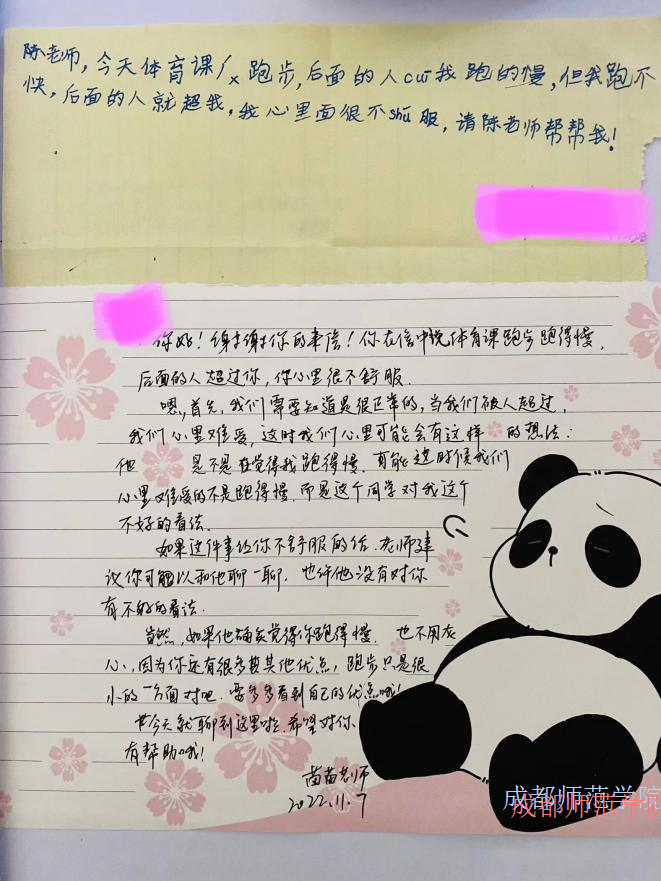 陈老师,今天体育课广x跑步,后面的人cuī我跑的慢,但我跑不
快,后面的人就超我,我心里面很不shū服,请陈老师帮帮我!
你好!谢谢你的来信!你在信中说体育课跑步跑得慢,
后面的人超过你,你心里很不舒服.
嗯,首先,我们需要知道是很正常的,当我们被人超过,
我们心里难受,这时我们心里可能会有这样 的想法:
他 是不是在觉得我跑得慢.可能这时候我们
心里难受的不是跑得慢.而是这个同学对我这个
不好的看法.
如果这件事让你不舒服的话.老师建
议你可以和他聊一聊.也许他没有对你
有不好的看法.
当然,如果他确实觉得你跑得慢. 也不用灰
心,因为你还有很多其他优点,跑步只是很
小的一方面对吧.要多多看到自己的优点哦!
今天就聊到这里啦.希望对你
有帮助哦!
苗苗老师
2022.11.7
成都师范学院
成都师范